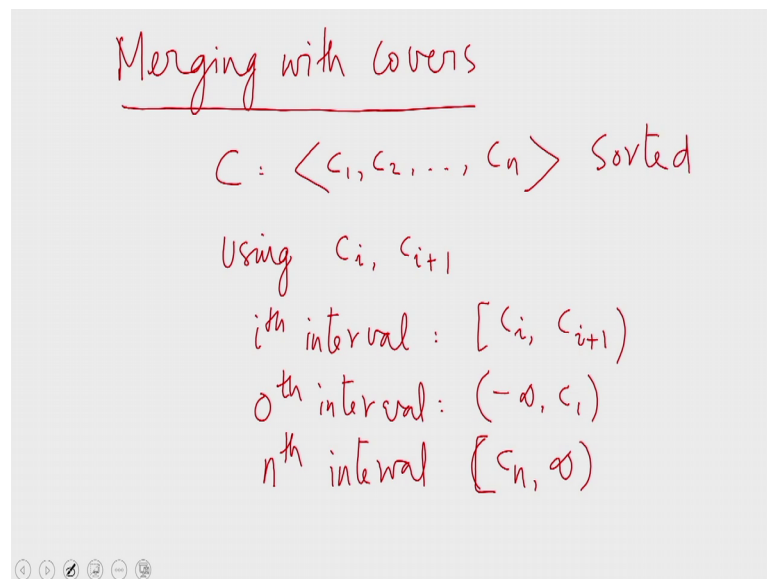 Merging with covers
C: <c₁, c₂, .., cₙ> sorted
using cᵢ, cᵢ₊₁
iᵗʰ interval: [cᵢ, cᵢ₊₁)
0ᵗʰ interval: (-∞, c₁)
nᵗʰ interval [cₙ, ∞)